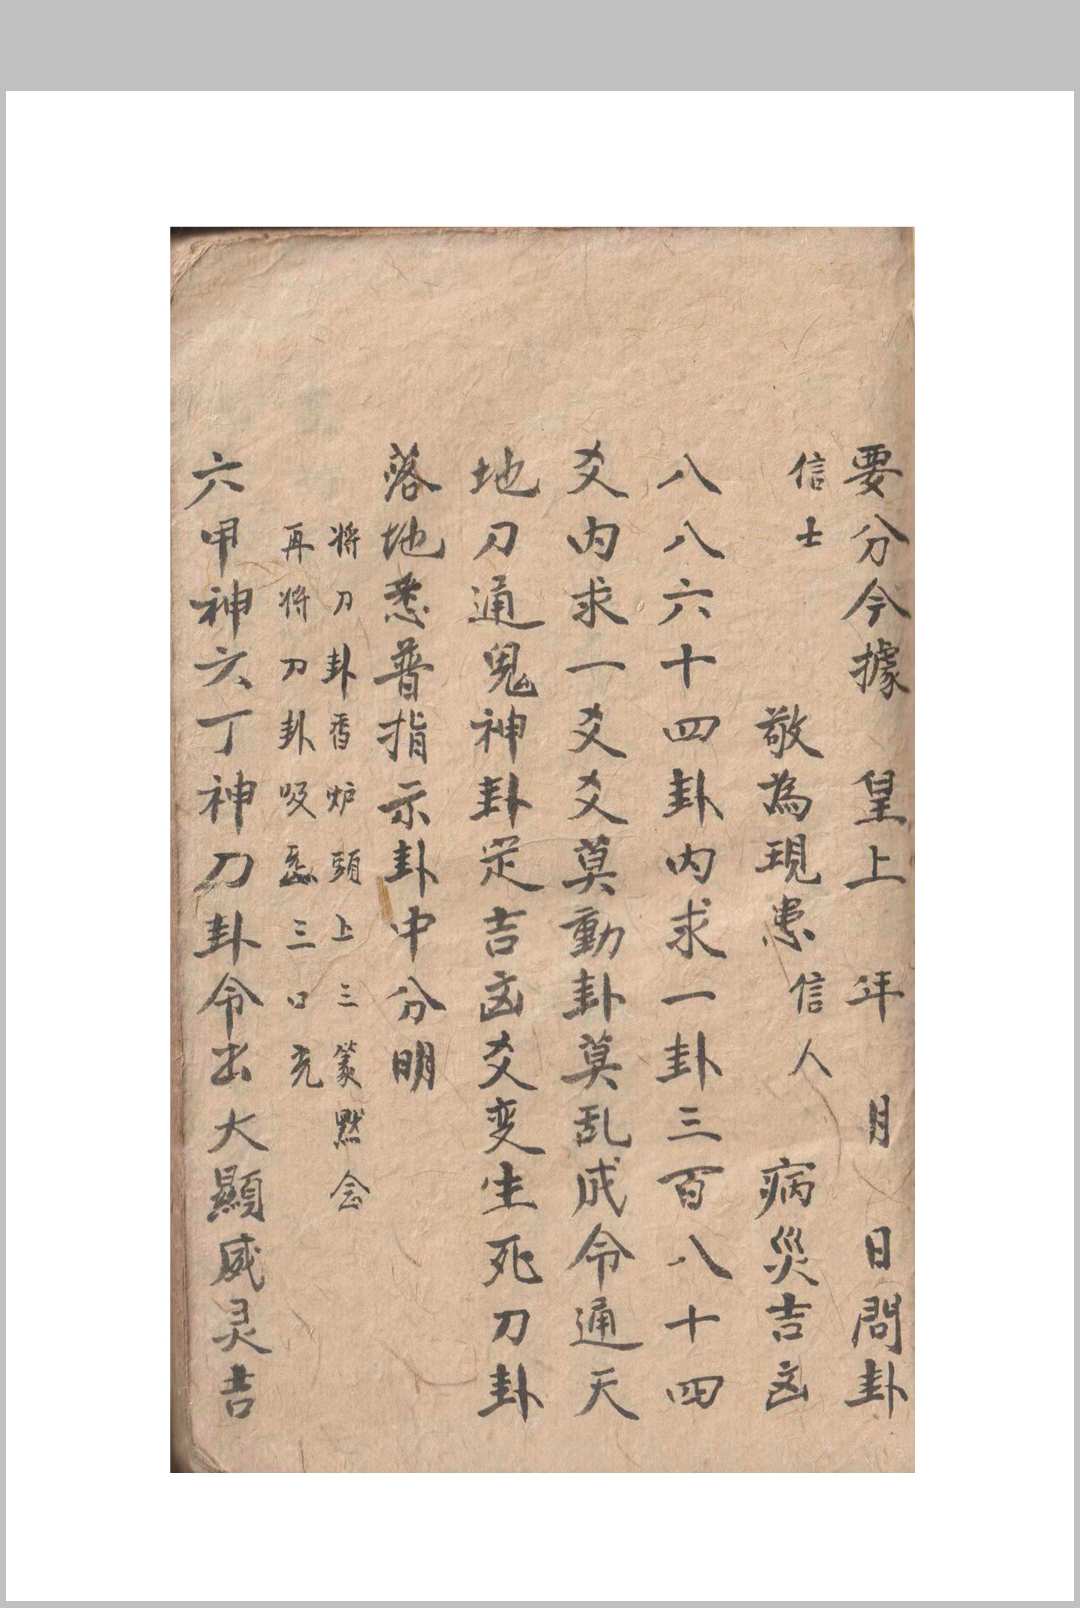 要分今據　皇上　年　月　日問卦
信士　敬為現患信人　病災吉凶
八八六十四卦内求一卦三百八十四
爻内求一爻爻莫動卦莫乱成令通天
地刀通鬼神卦定吉凶爻变生死刀卦
落地悉普指示卦中分明
将刀卦香炉頭上三篆默念
再将刀卦吸三口炁
六甲神六丁神刀卦令出大顯威灵吉